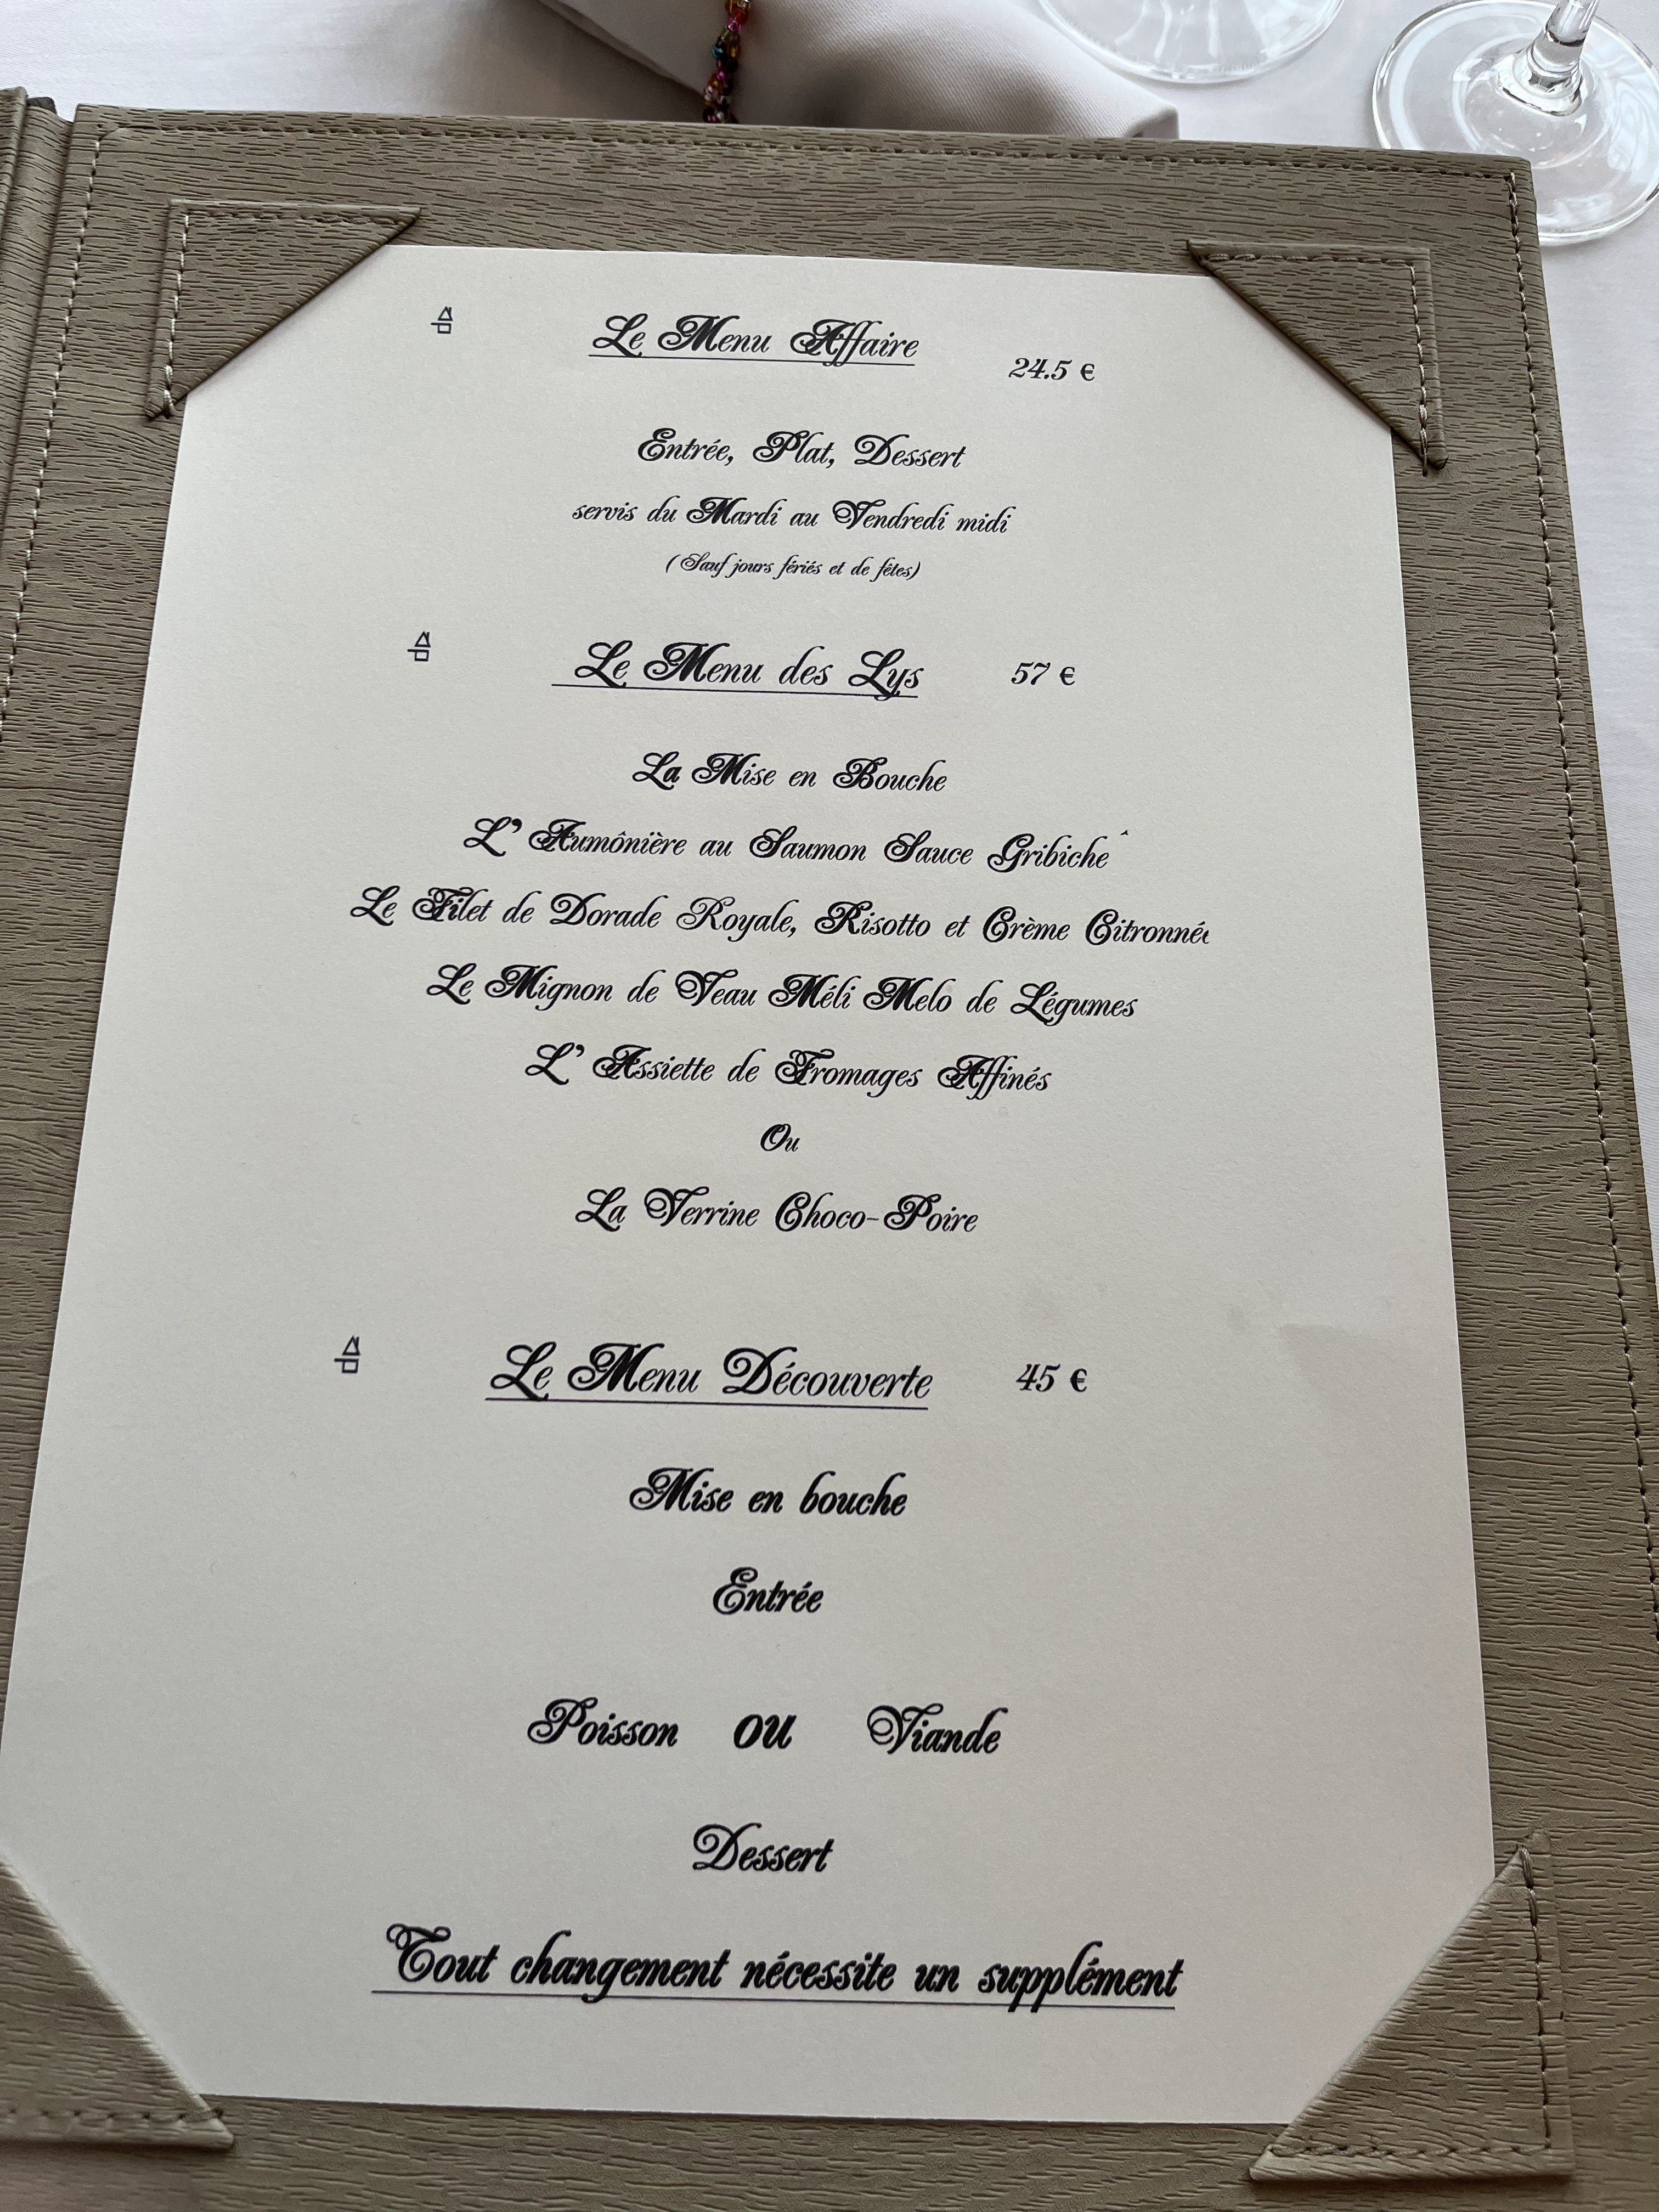 Le Menu Affaire 24.5 €
Entrée, Plat, Dessert
servis du Mardi au Vendredi midi
(Sauf jours fériés et de fêtes)
Le Menu des Lys 57 €
La Mise en Bouche
L' Aumônière au Saumon Sauce Gribiche
Le Filet de Dorade Royale, Risotto et Crème Citronnée
Le Mignon de Veau Méli Melo de Légumes
L' Assiette de Fromages Affinés
Ou
La Verrine Choco-Poire
Le Menu Découverte 45 €
Mise en bouche
Entrée
Poisson ou Viande
Dessert
Tout changement nécessite un supplément